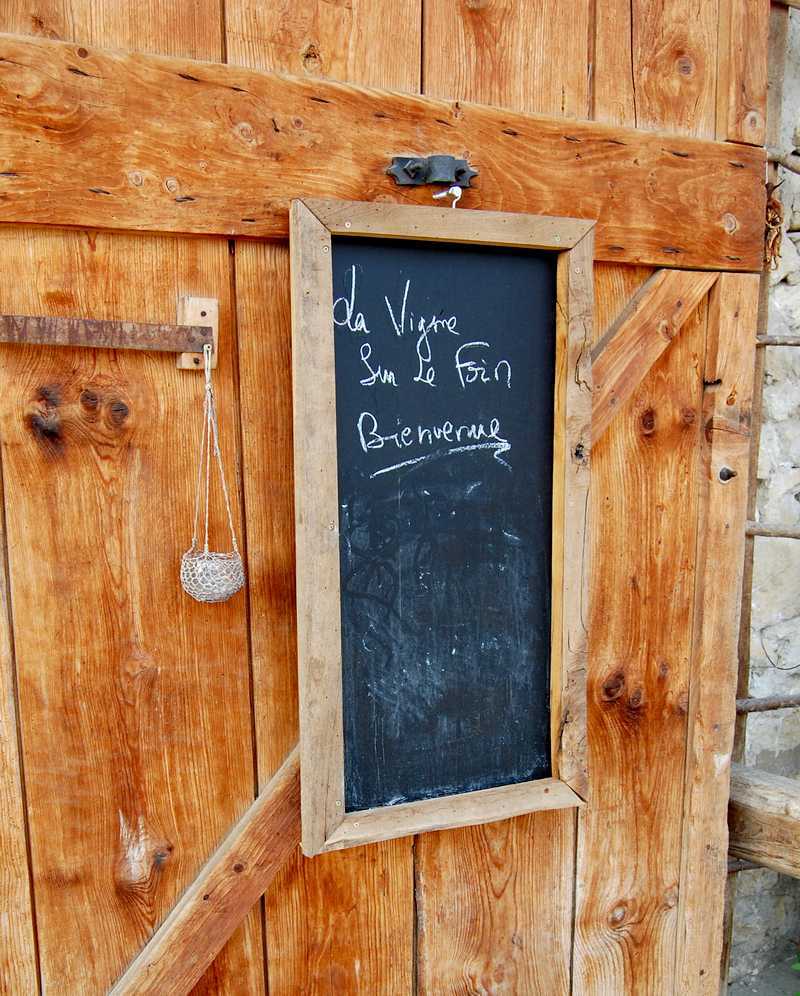 La Vigne
Sur Le Foin
Bienvenue